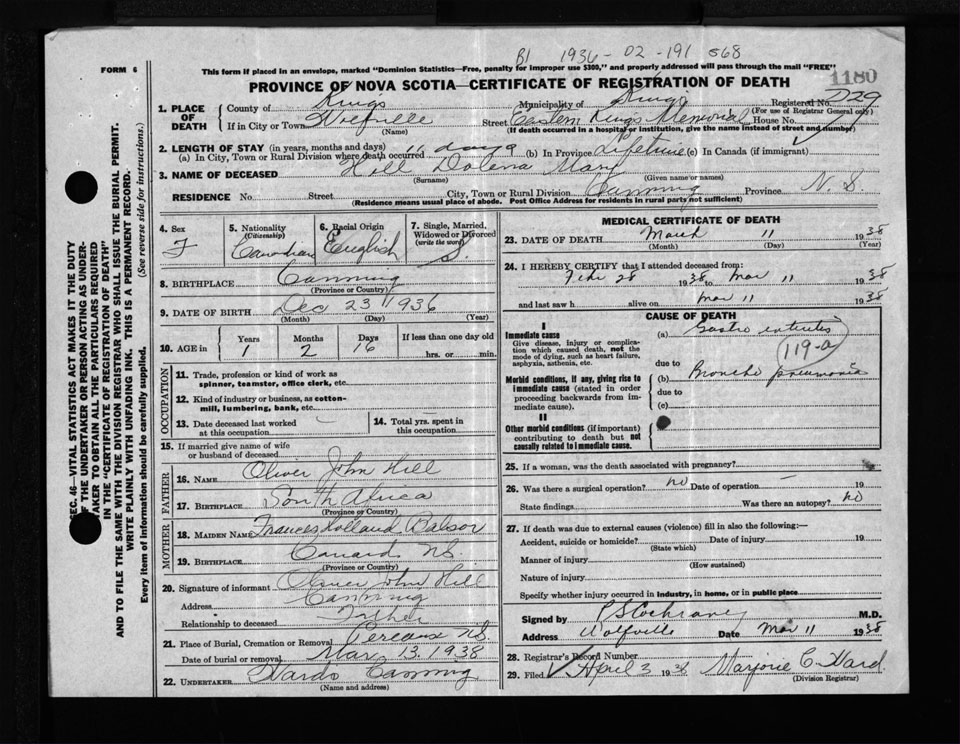 B1 1936 - 02 - 191 568
FORM 6
This form if placed in an envelope, marked "Dominion Statistics—Free, penalty for improper use $300," and properly addressed will pass through the mail "FREE"
1180
PROVINCE OF NOVA SCOTIA—CERTIFICATE OF REGISTRATION OF DEATH
1. PLACE OF DEATH
County of Kings Municipality of Kings Registered No. 729
(For use of Registrar General only)
If in City or Town Wolfville Street Eastern Kings Memorial House No.
(Name) (If death occurred in a hospital or institution, give the name instead of street and number)
2. LENGTH OF STAY (in years, months and days)
(a) In City, Town or Rural Division where death occurred 11 days (b) In Province Lifetime (c) In Canada (if immigrant)
3. NAME OF DECEASED Hill Dolena Mary
(Surname) (Given name or names)
RESIDENCE No. Street City, Town or Rural Division Canning Province N. S.
(Residence means usual place of abode. Post Office Address for residents in rural parts not sufficient)
4. Sex F
5. Nationality (Citizenship) Canadian
6. Racial Origin English
7. Single, Married, Widowed or Divorced (write the word) S.
8. BIRTHPLACE Canning
(Province or Country)
9. DATE OF BIRTH Dec 23 1936
(Month) (Day) (Year)
10. AGE in Years Months Days If less than one day old
1 2 16 hrs. or min.
OCCUPATION
11. Trade, profession or kind of work as spinner, teamster, office clerk, etc.
12. Kind of industry or business, as cotton-mill, lumbering, bank, etc.
13. Date deceased last worked at this occupation
14. Total yrs. spent in this occupation
15. If married give name of wife or husband of deceased
FATHER
16. NAME Oliver John Hill
17. BIRTHPLACE South Africa
(Province or Country)
MOTHER
18. MAIDEN NAME Frances Holland Balsor
19. BIRTHPLACE Canard NS.
(Province or Country)
20. Signature of informant Oliver John Hill
Address Canning
Relationship to deceased Father
21. Place of Burial, Cremation or Removal Pereaux NS.
Date of burial or removal Mar 13. 1938
22. UNDERTAKER Wards Canning
(Name and address)
MEDICAL CERTIFICATE OF DEATH
23. DATE OF DEATH March 11 1938
(Month) (Day) (Year)
24. I HEREBY CERTIFY that I attended deceased from:
Febr 28 1938 to Mar 11 1938
and last saw h alive on Mar 11 1938
CAUSE OF DEATH
I
Immediate cause
Give disease, injury or complication which caused death, not the mode of dying, such as heart failure, asphyxia, asthenia, etc.
(a) Gastro enteritis
119-a
due to
Morbid conditions, if any, giving rise to immediate cause (stated in order proceeding backwards from immediate cause).
(b) Broncho pneumonia
due to
(c)
II
Other morbid conditions (if important) contributing to death but not causally related to immediate cause.
25. If a woman, was the death associated with pregnancy?
26. Was there a surgical operation? no Date of operation 19
State findings Was there an autopsy? no
27. If death was due to external causes (violence) fill in also the following:—
Accident, suicide or homicide? Date of injury 19
(State which)
Manner of injury
(How sustained)
Nature of injury
Specify whether injury occurred in industry, in home, or in public place
Signed by P S Cochrane M.D.
Address Wolfville Date Mar 11 1938
28. Registrar's Record Number
29. Filed April 2 1938 Marjorie C. Ward
(Division Registrar)
SEC. 46—VITAL STATISTICS ACT MAKES IT THE DUTY
OF THE UNDERTAKER OR PERSON ACTING AS UNDER-
TAKER TO OBTAIN ALL THE PARTICULARS REQUIRED
IN THE "CERTIFICATE OF REGISTRATION OF DEATH"
AND TO FILE THE SAME WITH THE DIVISION REGISTRAR WHO SHALL ISSUE THE BURIAL PERMIT.
WRITE PLAINLY WITH UNFADING INK. THIS IS A PERMANENT RECORD.
Every item of information should be carefully supplied. (See reverse side for instructions.)